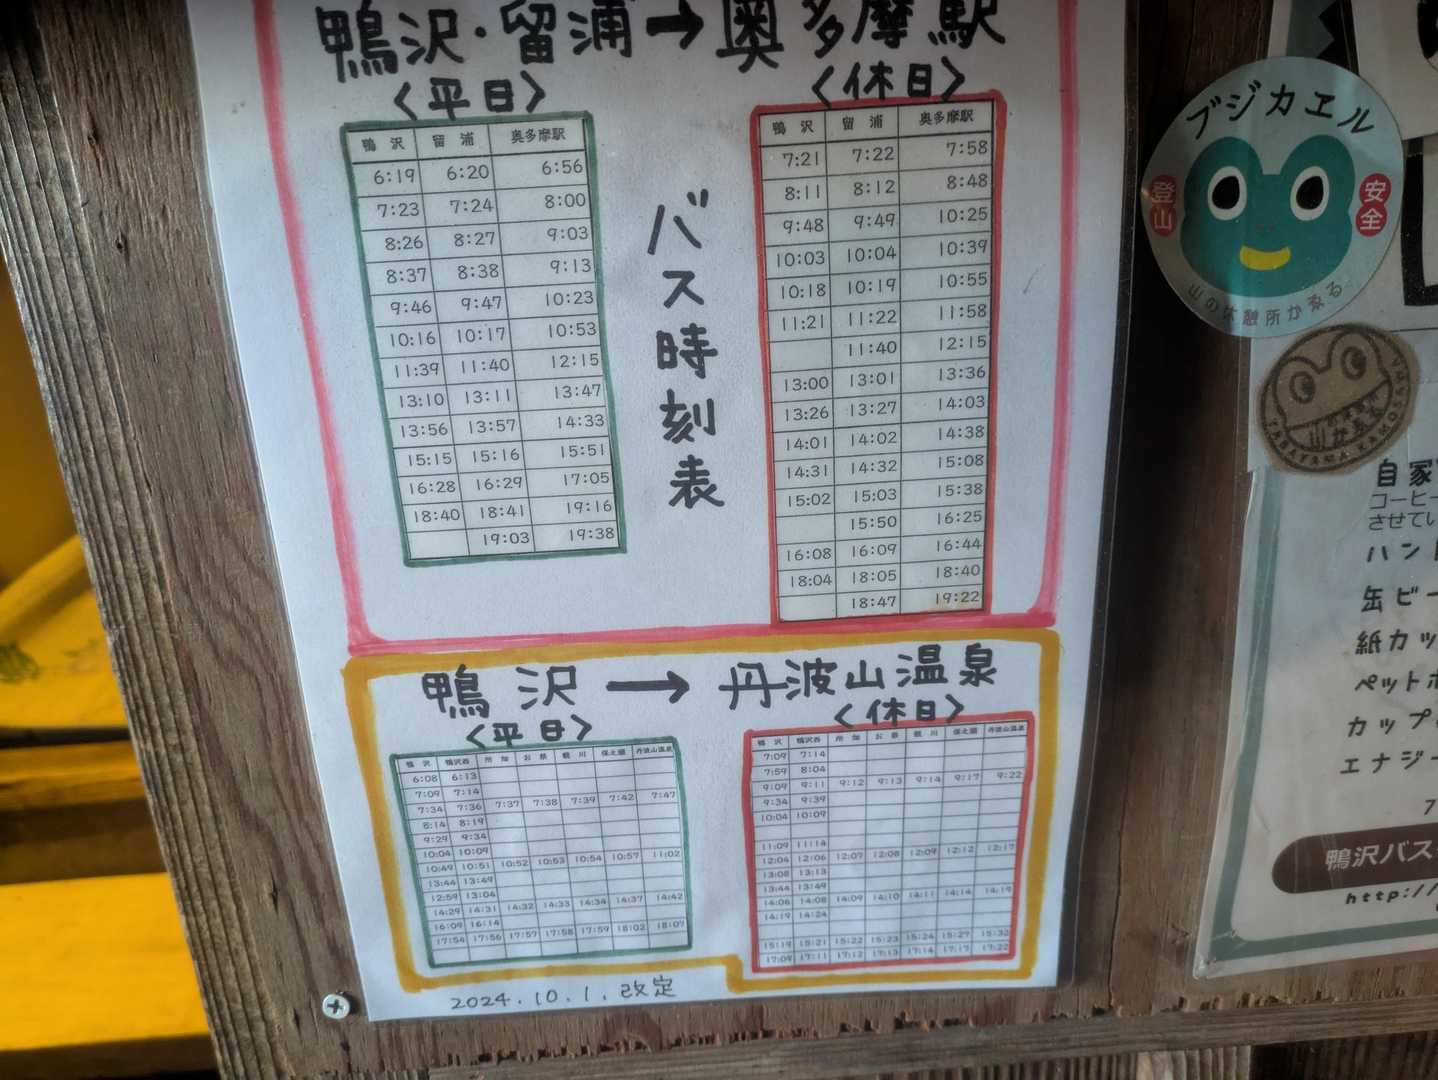 鴨沢・留浦→奥多摩駅
〈平日〉
鴨沢 留浦 奥多摩駅
6:19 6:20 6:56
7:23 7:24 8:00
8:26 8:27 9:03
8:37 8:38 9:13
9:46 9:47 10:23
10:16 10:17 10:53
11:39 11:40 12:15
13:10 13:11 13:47
13:56 13:57 14:33
15:15 15:16 15:51
16:28 16:29 17:05
18:40 18:41 19:16
19:03 19:38
バス時刻表
〈休日〉
鴨沢 留浦 奥多摩駅
7:21 7:22 7:58
8:11 8:12 8:48
9:48 9:49 10:25
10:03 10:04 10:39
10:18 10:19 10:55
11:21 11:22 11:58
11:40 12:15
13:00 13:01 13:36
13:26 13:27 14:03
14:01 14:02 14:38
14:31 14:32 15:08
15:02 15:03 15:38
15:50 16:25
16:08 16:09 16:44
18:04 18:05 18:40
18:47 19:22
鴨沢→丹波山温泉
〈平日〉
鴨沢 鴨沢西 所畑 お祭 親川 保之瀬 丹波山温泉
6:08 6:13
7:09 7:14
7:34 7:36 7:37 7:38 7:39 7:42 7:47
8:14 8:19
9:29 9:34
10:04 10:09
10:49 10:51 10:52 10:53 10:54 10:57 11:02
13:44 13:49
12:59 13:04
14:29 14:31 14:32 14:33 14:34 14:37 14:42
16:09 16:14
17:54 17:56 17:57 17:58 17:59 18:02 18:07
〈休日〉
鴨沢 鴨沢西 所畑 お祭 親川 保之瀬 丹波山温泉
7:09 7:14
7:59 8:04
9:09 9:11 9:12 9:13 9:14 9:17 9:22
9:34 9:39
10:04 10:09
11:09 11:14
12:04 12:06 12:07 12:08 12:09 12:12 12:17
13:08 13:13
13:44 13:49
14:06 14:08 14:09 14:10 14:11 14:14 14:19
14:19 14:24
15:19 15:21 15:22 15:23 15:24 15:27 15:32
17:09 17:11 17:12 17:13 17:14 17:17 17:22
2024.10.1.改定
ブジカエル
登山
安全
山の休憩所かゑる
自家
コーヒー
させてい
ハンド
缶ビー
紙カッ
ペットボ
カップ
エナジー
7
鴨沢バス
http://